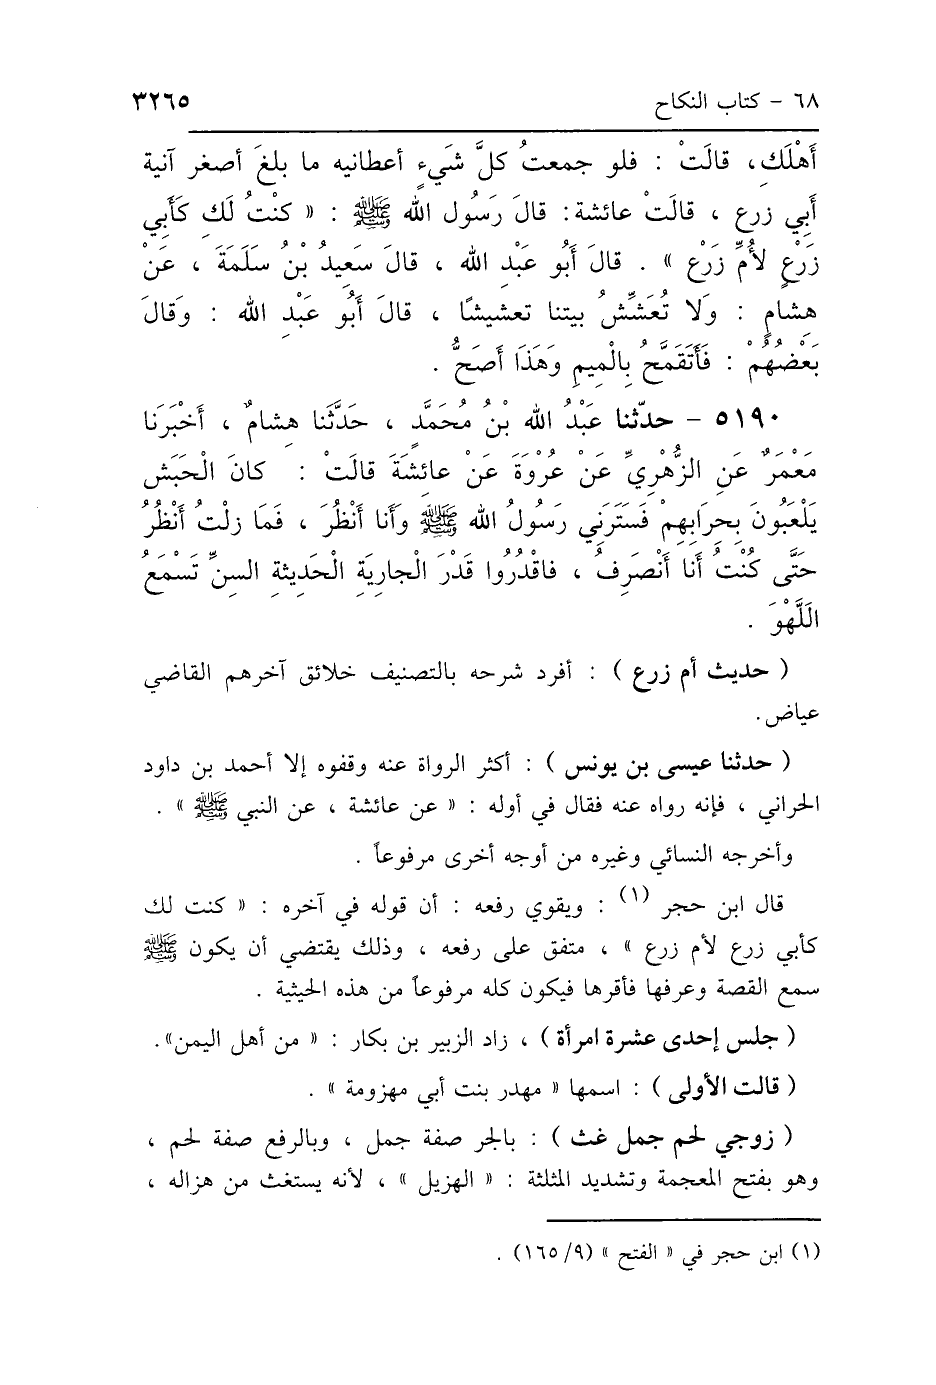 ٦٨ - كتاب النكاح ٣٢٦٥
أَهْلَكِ، قالَتْ : فلو جمعتُ كلَّ شَيءٍ أعطانيه ما بلغَ أصغر آنية
أَبِي زرع ، قالَتْ عائشة: قالَ رَسُول الله ﷺ : « كنْتُ لَكِ كَأَبي
زَرْعٍ لأُمِّ زَرْع » . قالَ أَبُو عبْدِ الله ، قالَ سَعِيدُ بْنُ سَلَمَةَ ، عَنْ
هشامٍ : وَلا تُعَشِّشُ بيتنا تعشيشًا ، قالَ أَبُو عَبْدِ الله : وَقالَ
بَعْضُهُمْ : فَأَتَقَمَّحُ بِالْميمِ وَهَذَا أَصَحُّ .
٥١٩٠ - حدّثنا عَبْدُ الله بْنُ مُحَمَّدٍ ، حَدَّثَنا هِشامٌ ، أَخْبَرَنا
مَعْمَرٌ عَنِ الزُّهْرِيِّ عَنْ عُرْوَةَ عَنْ عائِشَةَ قالَتْ : كانَ الْحَبَش
يَلْعَبُونَ بِحِرَابِهِمْ فَسَتَرَنِي رَسُولُ الله ﷺ وَأَنا أَنْظُرَ ، فَمَا زِلْتُ أَنْظُرُ
حَتَّى كُنْتُ أَنا أَنْصَرِفُ ، فاقْدُرُوا قَدْرَ الْجارِيَةِ الْحَدِيثة السنِّ تَسْمَعُ
اللَّهْوَ .
( حديث أم زرع ) : أفرد شرحه بالتصنيف خلائق آخرهم القاضي
عياض.
( حدثنا عيسى بن يونس ) : أكثر الرواة عنه وقفوه إلا أحمد بن داود
الحراني ، فإنه رواه عنه فقال في أوله : « عن عائشة ، عن النبي ﷺ » .
وأخرجه النسائي وغيره من أوجه أخرى مرفوعاً .
قال ابن حجر (١) : ويقوي رفعه : أن قوله في آخره : « كنت لك
كأبي زرع لأم زرع » ، متفق على رفعه ، وذلك يقتضي أن يكون ﷺ
سمع القصة وعرفها فأقرها فيكون كله مرفوعاً من هذه الحيثية .
( جلس إحدى عشرة امرأة ) ، زاد الزبير بن بكار : « من أهل اليمن».
( قالت الأولى ) : اسمها « مهدر بنت أبي مهزومة » .
( زوجي لحم جمل غث ) : بالجر صفة جمل ، وبالرفع صفة لحم ،
وهو بفتح المعجمة وتشديد المثلثة : « الهزيل » ، لأنه يستغث من هزاله ،
(١) ابن حجر في « الفتح » (٩/ ١٦٥) .